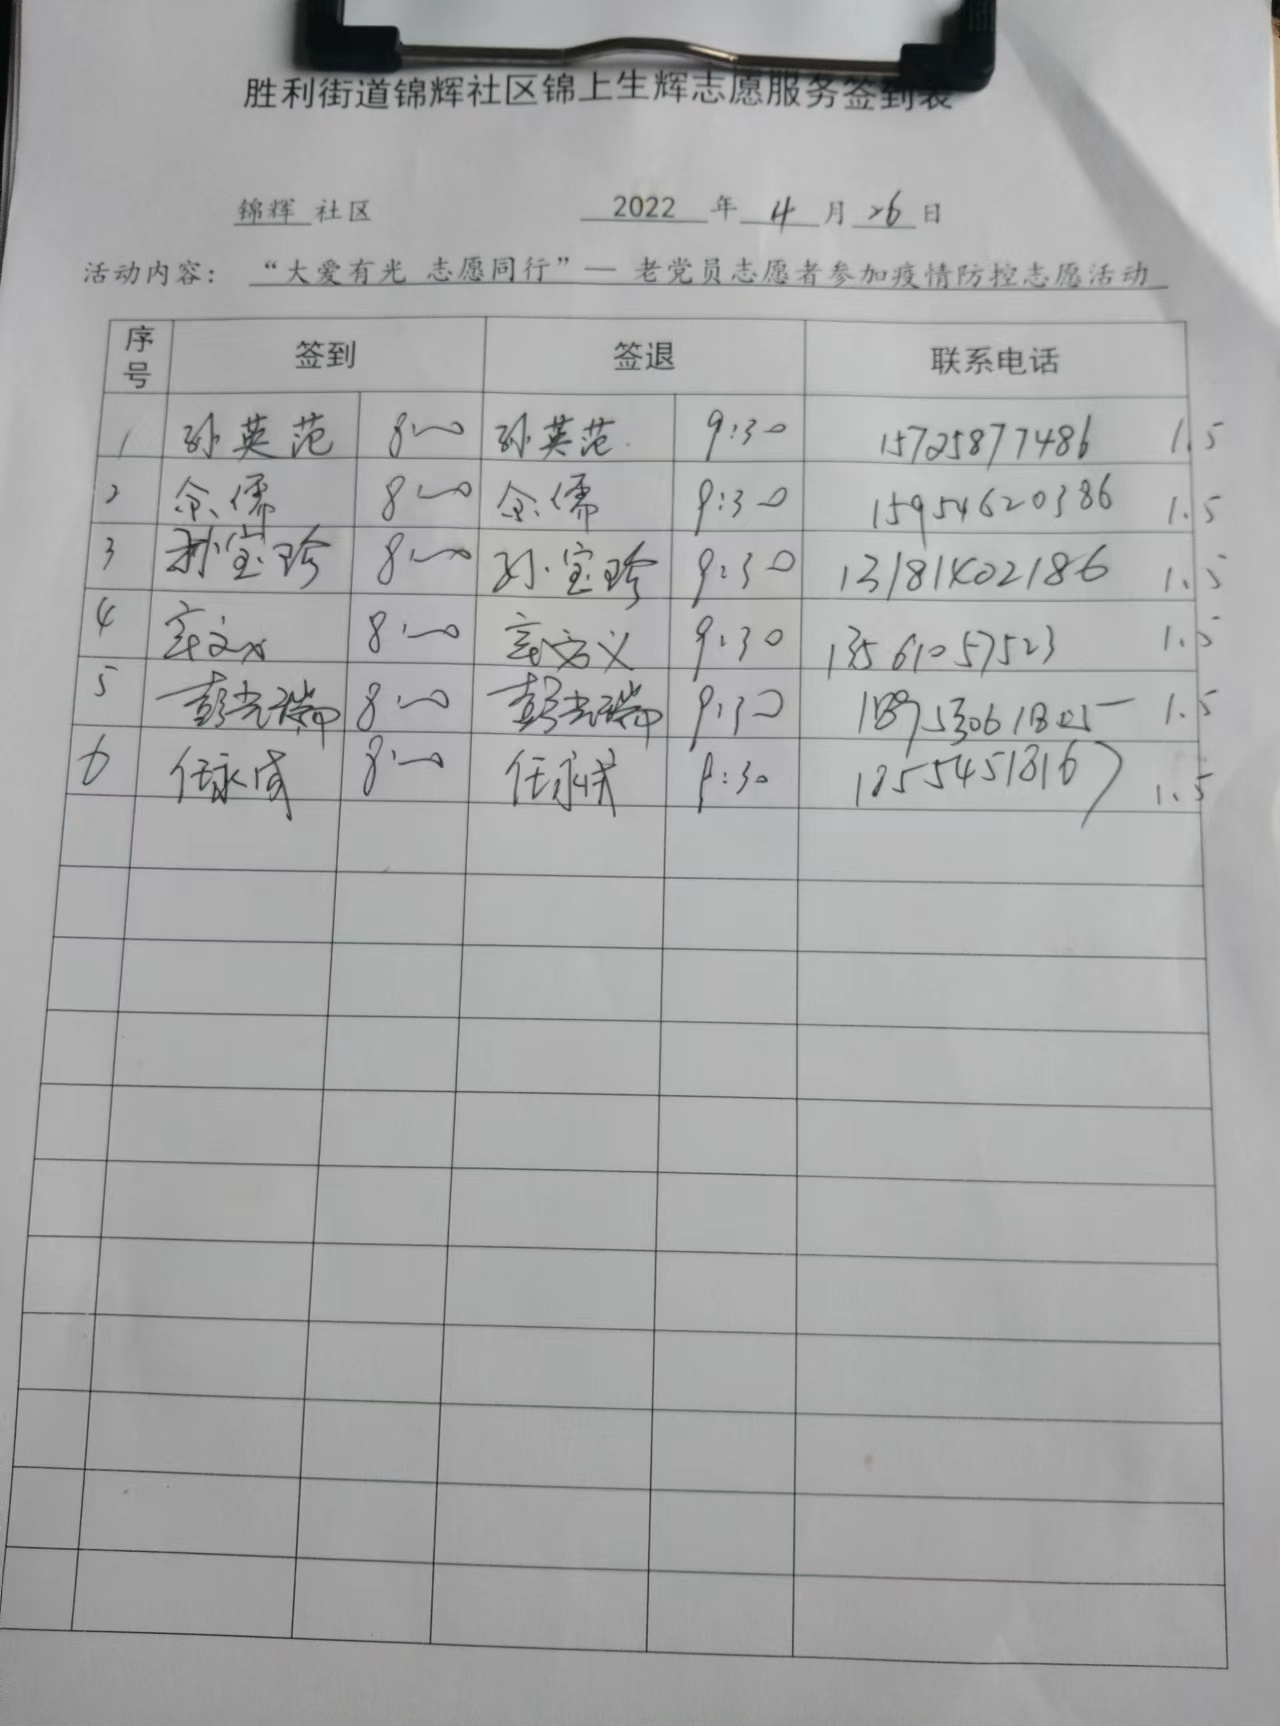 胜利街道锦辉社区锦上生辉志愿服务签到表
锦辉 社区 2022 年 4 月 26 日
活动内容： “大爱有光 志愿同行”— 老党员志愿者参加疫情防控志愿活动
序号 签到 签退 联系电话
1 孙英范 8:00 孙英范 9:30 15725877486 1.5
2 8:00 9:30 15954620386 1.5
3 孙宝珍 8:00 孙宝珍 9:30 13181402186 1.5
4 8:00 9:30 13561057523 1.5
5 彭光瑞 8:00 彭光瑞 9:30 1.5
6 任永成 8:00 任永成 9:30 1.5